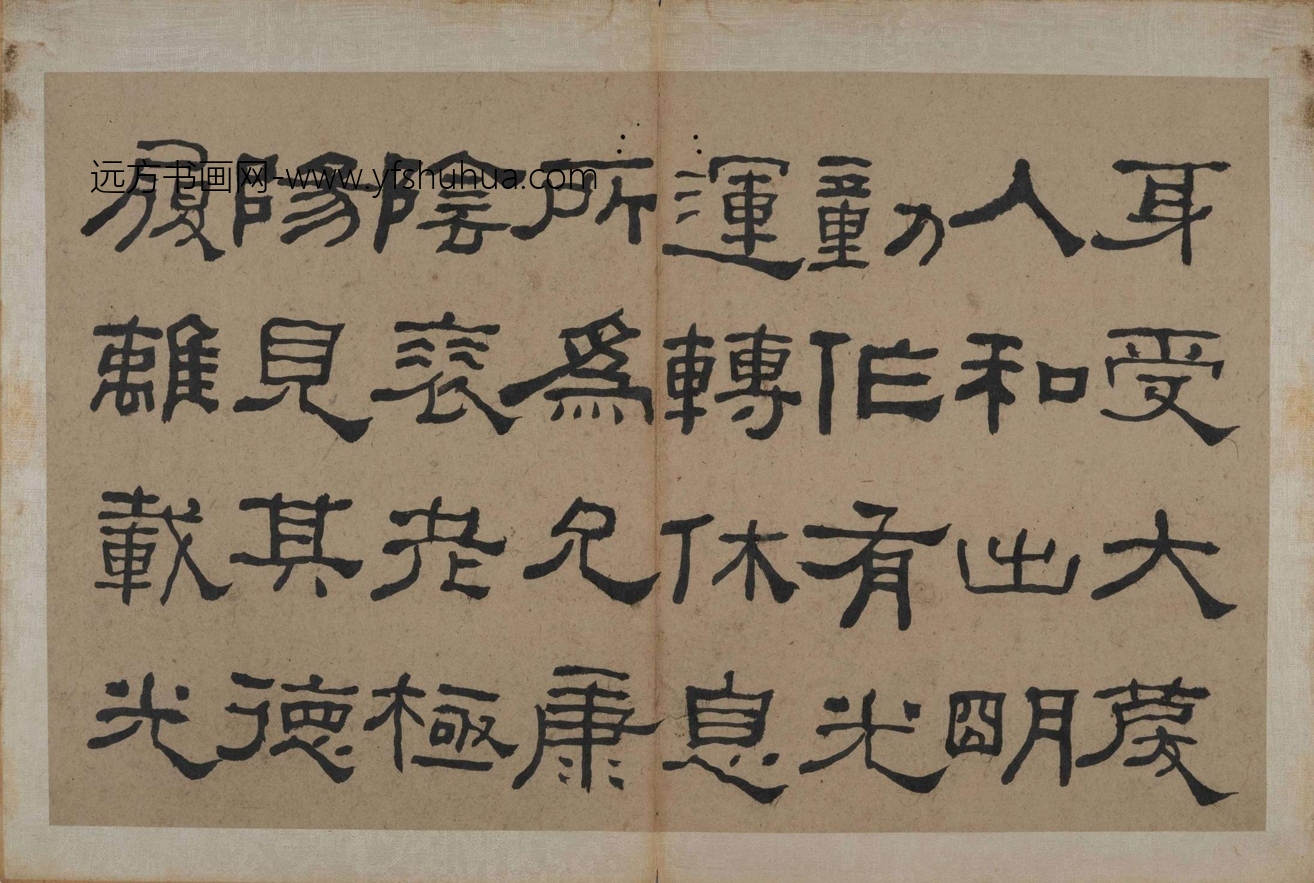 远方书画网-www.yfshuhua.com
耳受大慶
人和出明
動作有光
運轉休息
所爲允康
陰衰老極
陽見其德
履離載光